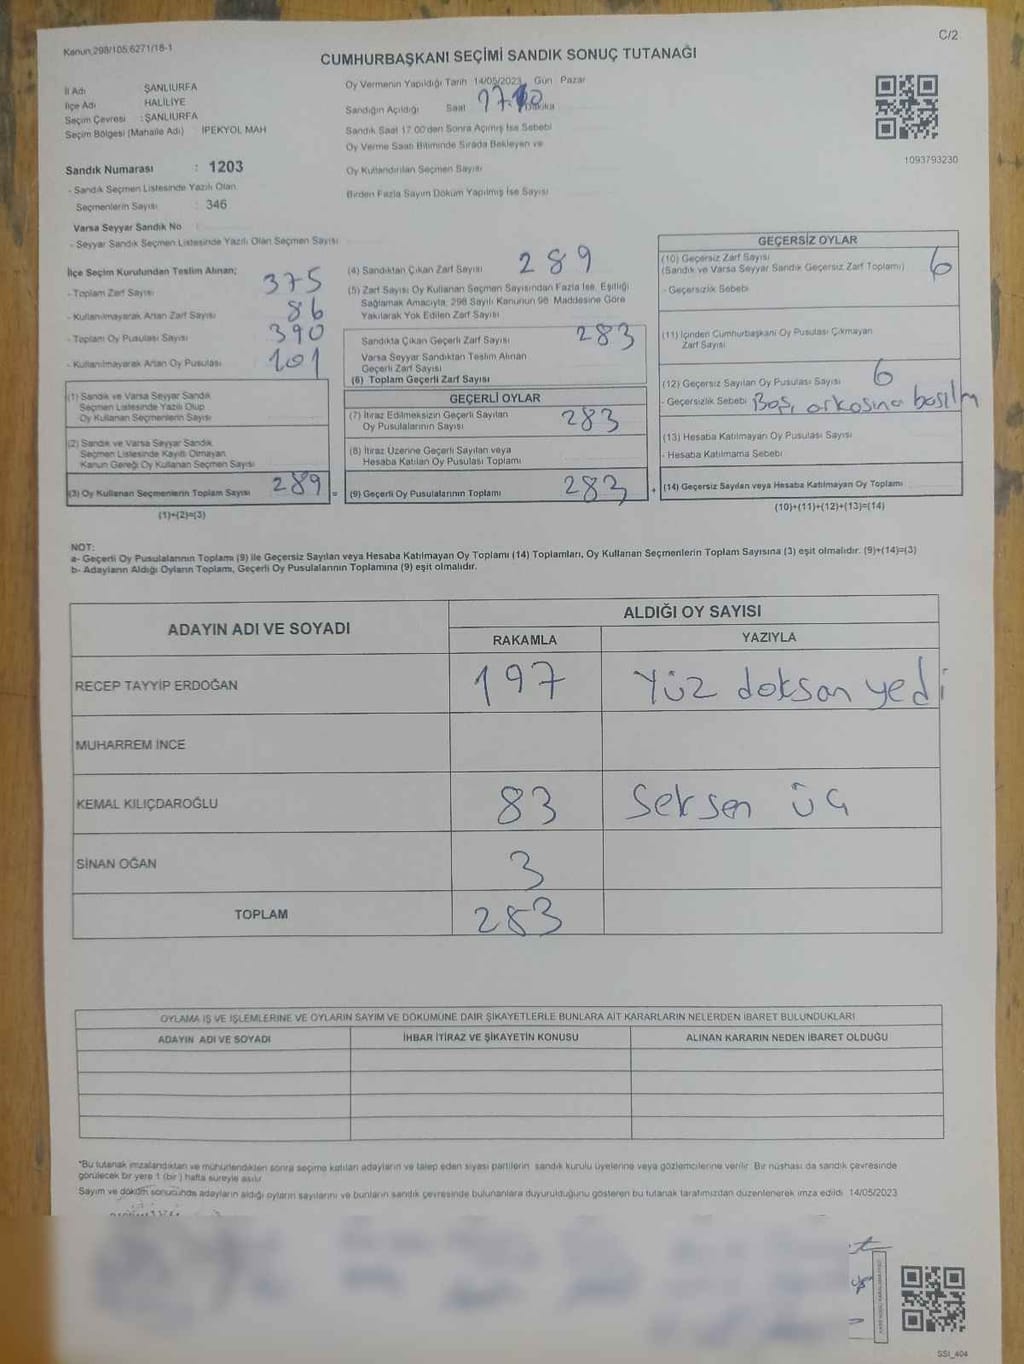 Kanun,298/105,6271/18-1
C/2
CUMHURBAŞKANI SEÇİMİ SANDIK SONUÇ TUTANAĞI
İl Adı ŞANLIURFA
İlçe Adı HALİLİYE
Seçim Çevresi : ŞANLIURFA
Seçim Bölgesi (Mahalle Adı) İPEKYOL MAH
Oy Vermenin Yapıldığı Tarih 14/05/2023 Gün Pazar
Sandığın Açıldığı Saat Dakika
Sandık Saat 17.00'den Sonra Açılmış İse Sebebi
Oy Verme Saati Bitiminde Sırada Bekleyen ve
Oy Kullandırılan Seçmen Sayısı
Birden Fazla Sayım Döküm Yapılmış İse Sayısı
1093793230
Sandık Numarası : 1203
- Sandık Seçmen Listesinde Yazılı Olan
Seçmenlerin Sayısı : 346
Varsa Seyyar Sandık No
- Seyyar Sandık Seçmen Listesinde Yazılı Olan Seçmen Sayısı
İlçe Seçim Kurulundan Teslim Alınan;
- Toplam Zarf Sayısı 375
- Kullanılmayarak Artan Zarf Sayısı 86
- Toplam Oy Pusulası Sayısı 390
- Kullanılmayarak Artan Oy Pusulası 101
(1) Sandık ve Varsa Seyyar Sandık
Seçmen Listesinde Yazılı Olup
Oy Kullanan Seçmenlerin Sayısı
(2) Sandık ve Varsa Seyyar Sandık
Seçmen Listesinde Kayıtlı Olmayan
Kanun Gereği Oy Kullanan Seçmen Sayısı
(3) Oy Kullanan Seçmenlerin Toplam Sayısı 289 =
(1)+(2)=(3)
(4) Sandıktan Çıkan Zarf Sayısı 289
(5) Zarf Sayısı Oy Kullanan Seçmen Sayısından Fazla İse, Eşitliği
Sağlamak Amacıyla, 298 Sayılı Kanunun 98. Maddesine Göre
Yakılarak Yok Edilen Zarf Sayısı
Sandıkta Çıkan Geçerli Zarf Sayısı 283
Varsa Seyyar Sandıktan Teslim Alınan
Geçerli Zarf Sayısı
(6) Toplam Geçerli Zarf Sayısı
GEÇERLİ OYLAR
(7) İtiraz Edilmeksizin Geçerli Sayılan
Oy Pusulalarının Sayısı 283
(8) İtiraz Üzerine Geçerli Sayılan veya
Hesaba Katılan Oy Pusulası Toplamı
(9) Geçerli Oy Pusulalarının Toplamı 283 +
GEÇERSİZ OYLAR
(10) Geçersiz Zarf Sayısı
(Sandık ve Varsa Seyyar Sandık Geçersiz Zarf Toplamı) 6
- Geçersizlik Sebebi
(11) İçinden Cumhurbaşkanı Oy Pusulası Çıkmayan
Zarf Sayısı
(12) Geçersiz Sayılan Oy Pusulası Sayısı 6
- Geçersizlik Sebebi Boş, arkasına basılm
(13) Hesaba Katılmayan Oy Pusulası Sayısı
- Hesaba Katılmama Sebebi
(14) Geçersiz Sayılan veya Hesaba Katılmayan Oy Toplamı
(10)+(11)+(12)+(13)=(14)
NOT:
a- Geçerli Oy Pusulalarının Toplamı (9) ile Geçersiz Sayılan veya Hesaba Katılmayan Oy Toplamı (14) Toplamları, Oy Kullanan Seçmenlerin Toplam Sayısına (3) eşit olmalıdır. (9)+(14)=(3)
b- Adayların Aldığı Oyların Toplamı, Geçerli Oy Pusulalarının Toplamına (9) eşit olmalıdır.
ADAYIN ADI VE SOYADI
ALDIĞI OY SAYISI
RAKAMLA YAZIYLA
RECEP TAYYİP ERDOĞAN 197 Yüz doksan yedi
MUHARREM İNCE
KEMAL KILIÇDAROĞLU 83 Seksen üç
SİNAN OĞAN 3
TOPLAM 283
OYLAMA İŞ VE İŞLEMLERİNE VE OYLARIN SAYIM VE DÖKÜMÜNE DAİR ŞİKAYETLERLE BUNLARA AİT KARARLARIN NELERDEN İBARET BULUNDUKLARI
ADAYIN ADI VE SOYADI İHBAR İTİRAZ VE ŞİKAYETİN KONUSU ALINAN KARARIN NEDEN İBARET OLDUĞU
*Bu tutanak imzalandıktan ve mühürlendikten sonra seçime katılan adayların ve talep eden siyasi partilerin sandık kurulu üyelerine veya gözlemcilerine verilir. Bir nüshası da sandık çevresinde
görülecek bir yere 1 (bir) hafta süreyle asılır.
Sayım ve döküm sonucunda adayların aldığı oyların sayılarını ve bunların sandık çevresinde bulunanlara duyurulduğunu gösteren bu tutanak tarafımızdan düzenlenerek imza edildi. 14/05/2023
SSI_404